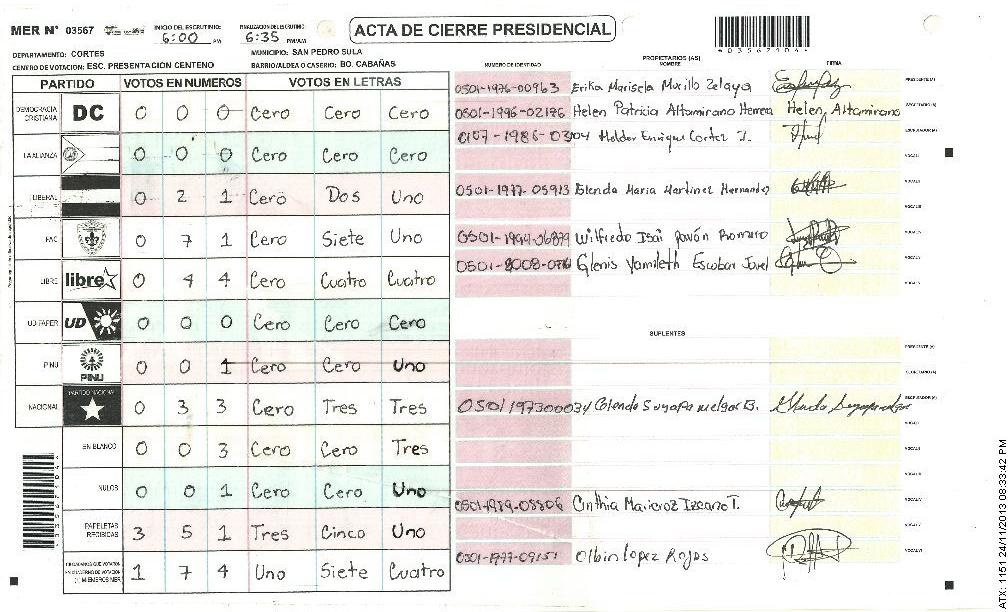 MER N° 03567
INICIO DEL ESCRUTINIO: 6:00 PM
FINALIZACION DEL ESCRUTINIO 6:35 PM/AM
ACTA DE CIERRE PRESIDENCIAL
DEPARTAMENTO: CORTES
MUNICIPIO: SAN PEDRO SULA
CENTRO DE VOTACIÓN: ESC. PRESENTACIÓN CENTENO
BARRIO/ALDEA O CASERIO: BO. CABAÑAS
PARTIDO VOTOS EN NUMEROS VOTOS EN LETRAS
DEMOCRACIA CRISTIANA DC 0 0 0 Cero Cero Cero
LA ALIANZA 0 0 0 Cero Cero Cero
LIBERAL 0 2 1 Cero Dos Uno
PAC 0 7 1 Cero Siete Uno
LIBRE libre 0 4 4 Cero Cuatro Cuatro
UD-FAPER UD 0 0 0 Cero Cero Cero
PINU PINU 0 0 1 Cero Cero Uno
NACIONAL PARTIDO NACIONAL 0 3 3 Cero Tres Tres
EN BLANCO 0 0 3 Cero Cero Tres
NULOS 0 0 1 Cero Cero Uno
PAPELETAS RECIBIDAS 3 5 1 Tres Cinco Uno
CIUDADANOS QUE VOTARON 1 7 4 Uno Siete Cuatro
PROPIETARIOS (AS)
NUMERO DE IDENTIDAD NOMBRE FIRMA
0501-1976-00963 Erika Marisela Murillo Zelaya PRESIDENTE (A)
0501-1996-02176 Helen Patricia Altamirano Herrera Helen Altamirano SECRETARIO (A)
0107-1986-03104 Helder Enrique Cortez J. ESCRUTADOR (A)
VOCAL I
0501-1977-05913 Glenda Maria Martinez Hernandez VOCAL II
VOCAL III
0501-1994-06879 Wilfredo Isai Pavón Romero VOCAL IV
Glenis Yamileth Escobar VOCAL V
SUPLENTES
PRESIDENTE (A)
SECRETARIO (A)
0501197300034 Suyapa Melgar B. ESCRUTADOR (A)
VOCAL I
VOCAL II
VOCAL III
0501-1989-08806 Cinthia Maricruz T. VOCAL IV
VOCAL V
0501-1977-09151 Olbin Lopez Rojas VOCAL VI
ATX: 1151 24/11/2013 08:33:42 PM